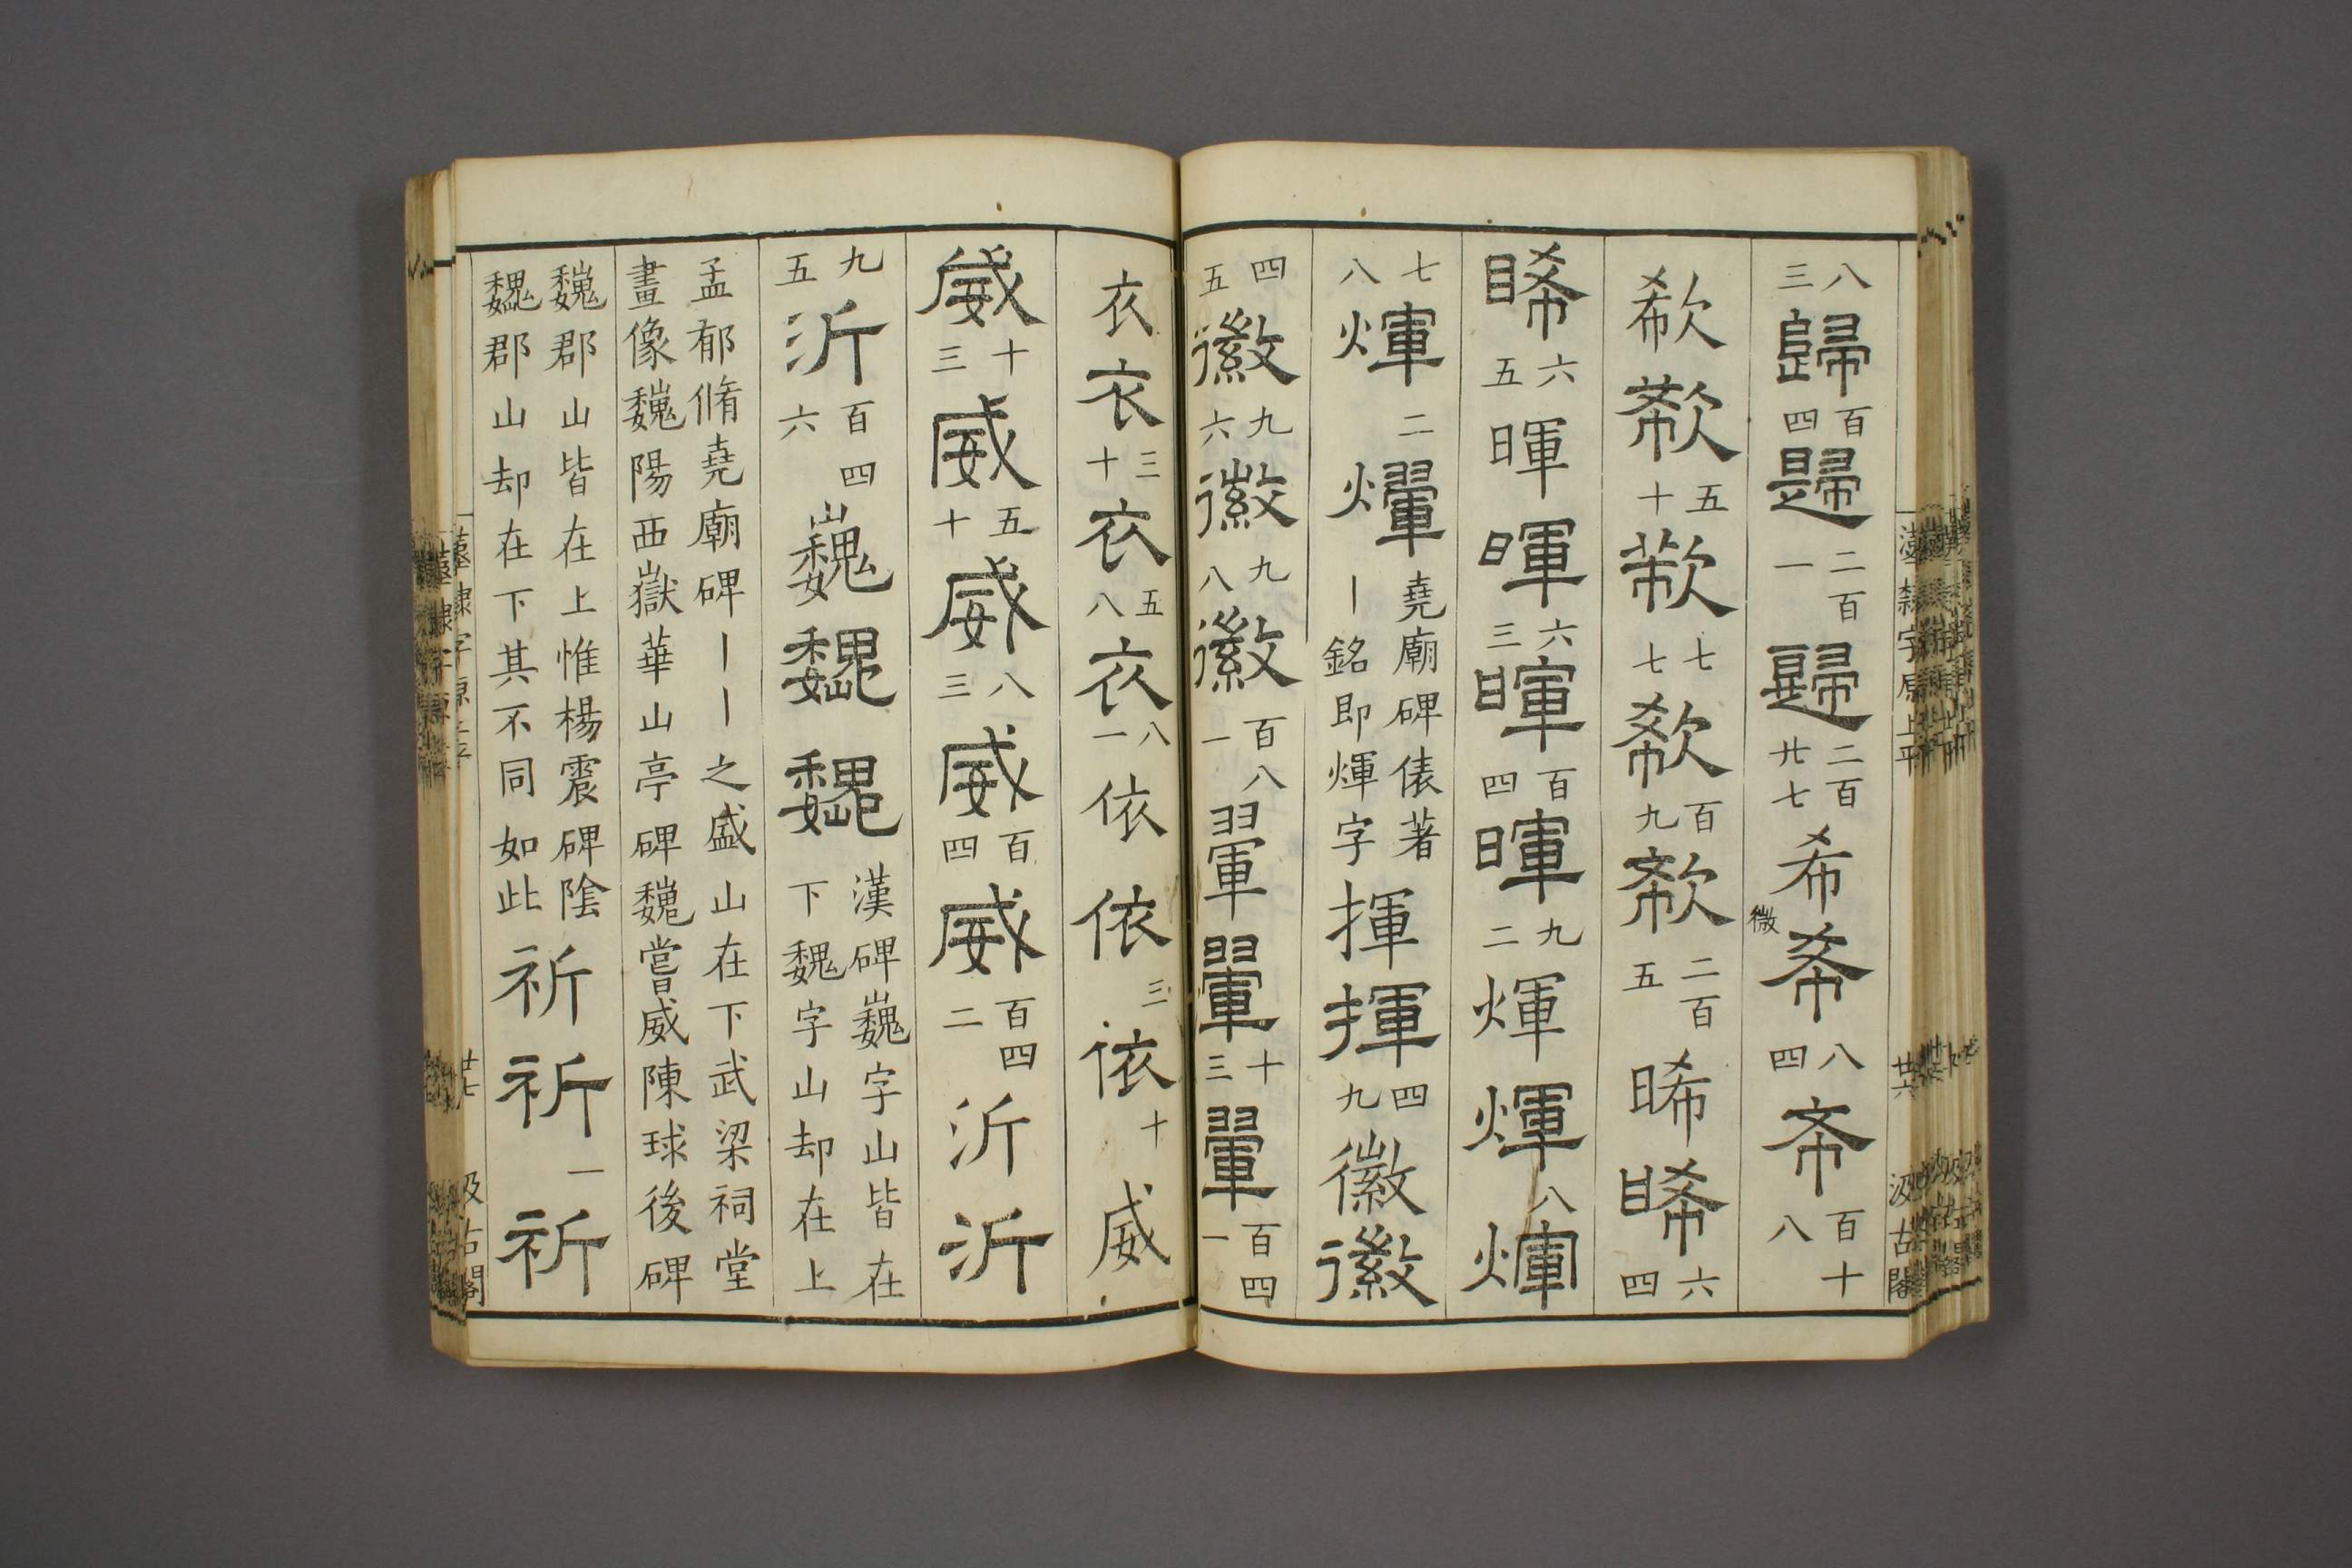 漢隸字原上平 廿六 汲古閣
八三歸百四歸二百一歸二百廿七希微希八四希百十八
欷欷五十欷七七欷百九欷二百五晞晞六四
晞六五暉暉六三暉百四暉九二煇煇八煇
七八煇二煇堯廟碑俵著｜銘即煇字揮揮四九徽徽
四五徽九六徽九八徽百八一翬翬十三翬百四一
衣衣三十衣五八衣八一依依三依十威
威十三威五十威八三威百四威百四二沂沂
九五沂百四六巍巍巍漢碑巍字山皆在下魏字山却在上
孟郁脩堯廟碑｜｜之盛山在下武梁祠堂
畫像巍陽西嶽華山亭碑巍嘗威陳球後碑
巍郡山皆在上惟楊震碑陰
魏郡山却在下其不同如此祈祈一祈
隸字原上平 廿七 汲古閣